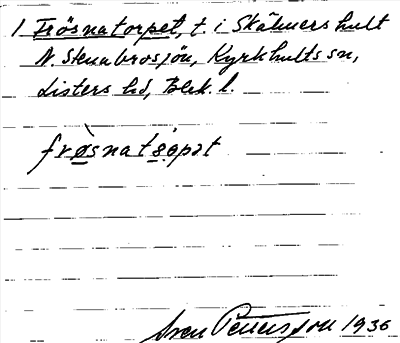 1 Frösnatorpet, t. i Skåluershult
N. Stenabrosjön, Kyrkhults sn,
Listers hd, Blek. l.
frøsnatsopət
Sven Petersson 1936